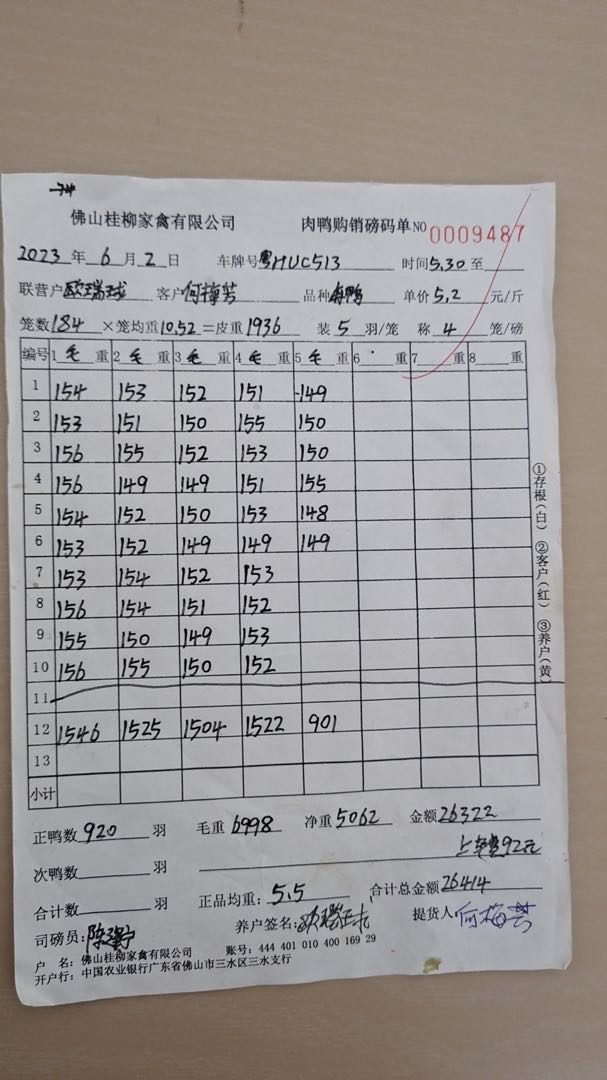 佛山桂柳家禽有限公司 肉鸭购销磅码单 NO 0009487
2023 年 6 月 2 日 车牌号 粤HUC513 时间 5.30 至
联营户 欧瑞球 客户 何梅芳 品种 鸭 单价 5,2 元/斤
笼数 184 ×笼均重 10.52 =皮重 1936 装 5 羽/笼 称 4 笼/磅
编号 1 毛 重 2 毛 重 3 毛 重 4 毛 重 5 毛 重 6 重 7 重 8 重
1 154 153 152 151 149
2 153 151 150 155 150
3 156 155 152 153 150
4 156 149 149 151 155
5 154 152 150 153 148
6 153 152 149 149 149
7 153 154 152 153
8 156 154 151 152
9 155 150 149 153
10 156 155 150 152
11
12 1546 1525 1504 1522 901
13
小计
①存根(白) ②客户(红) ③养户(黄)
正鸭数 920 羽 毛重 6998 净重 5062 金额 26322
次鸭数 羽 上车费92元
合计数 羽 正品均重: 5.5 合计总金额 26414
司磅员: 陈 养户签名: 欧瑞 提货人 何梅芳
户 名: 佛山桂柳家禽有限公司 账号: 444 401 010 400 169 29
开户行: 中国农业银行广东省佛山市三水区三水支行